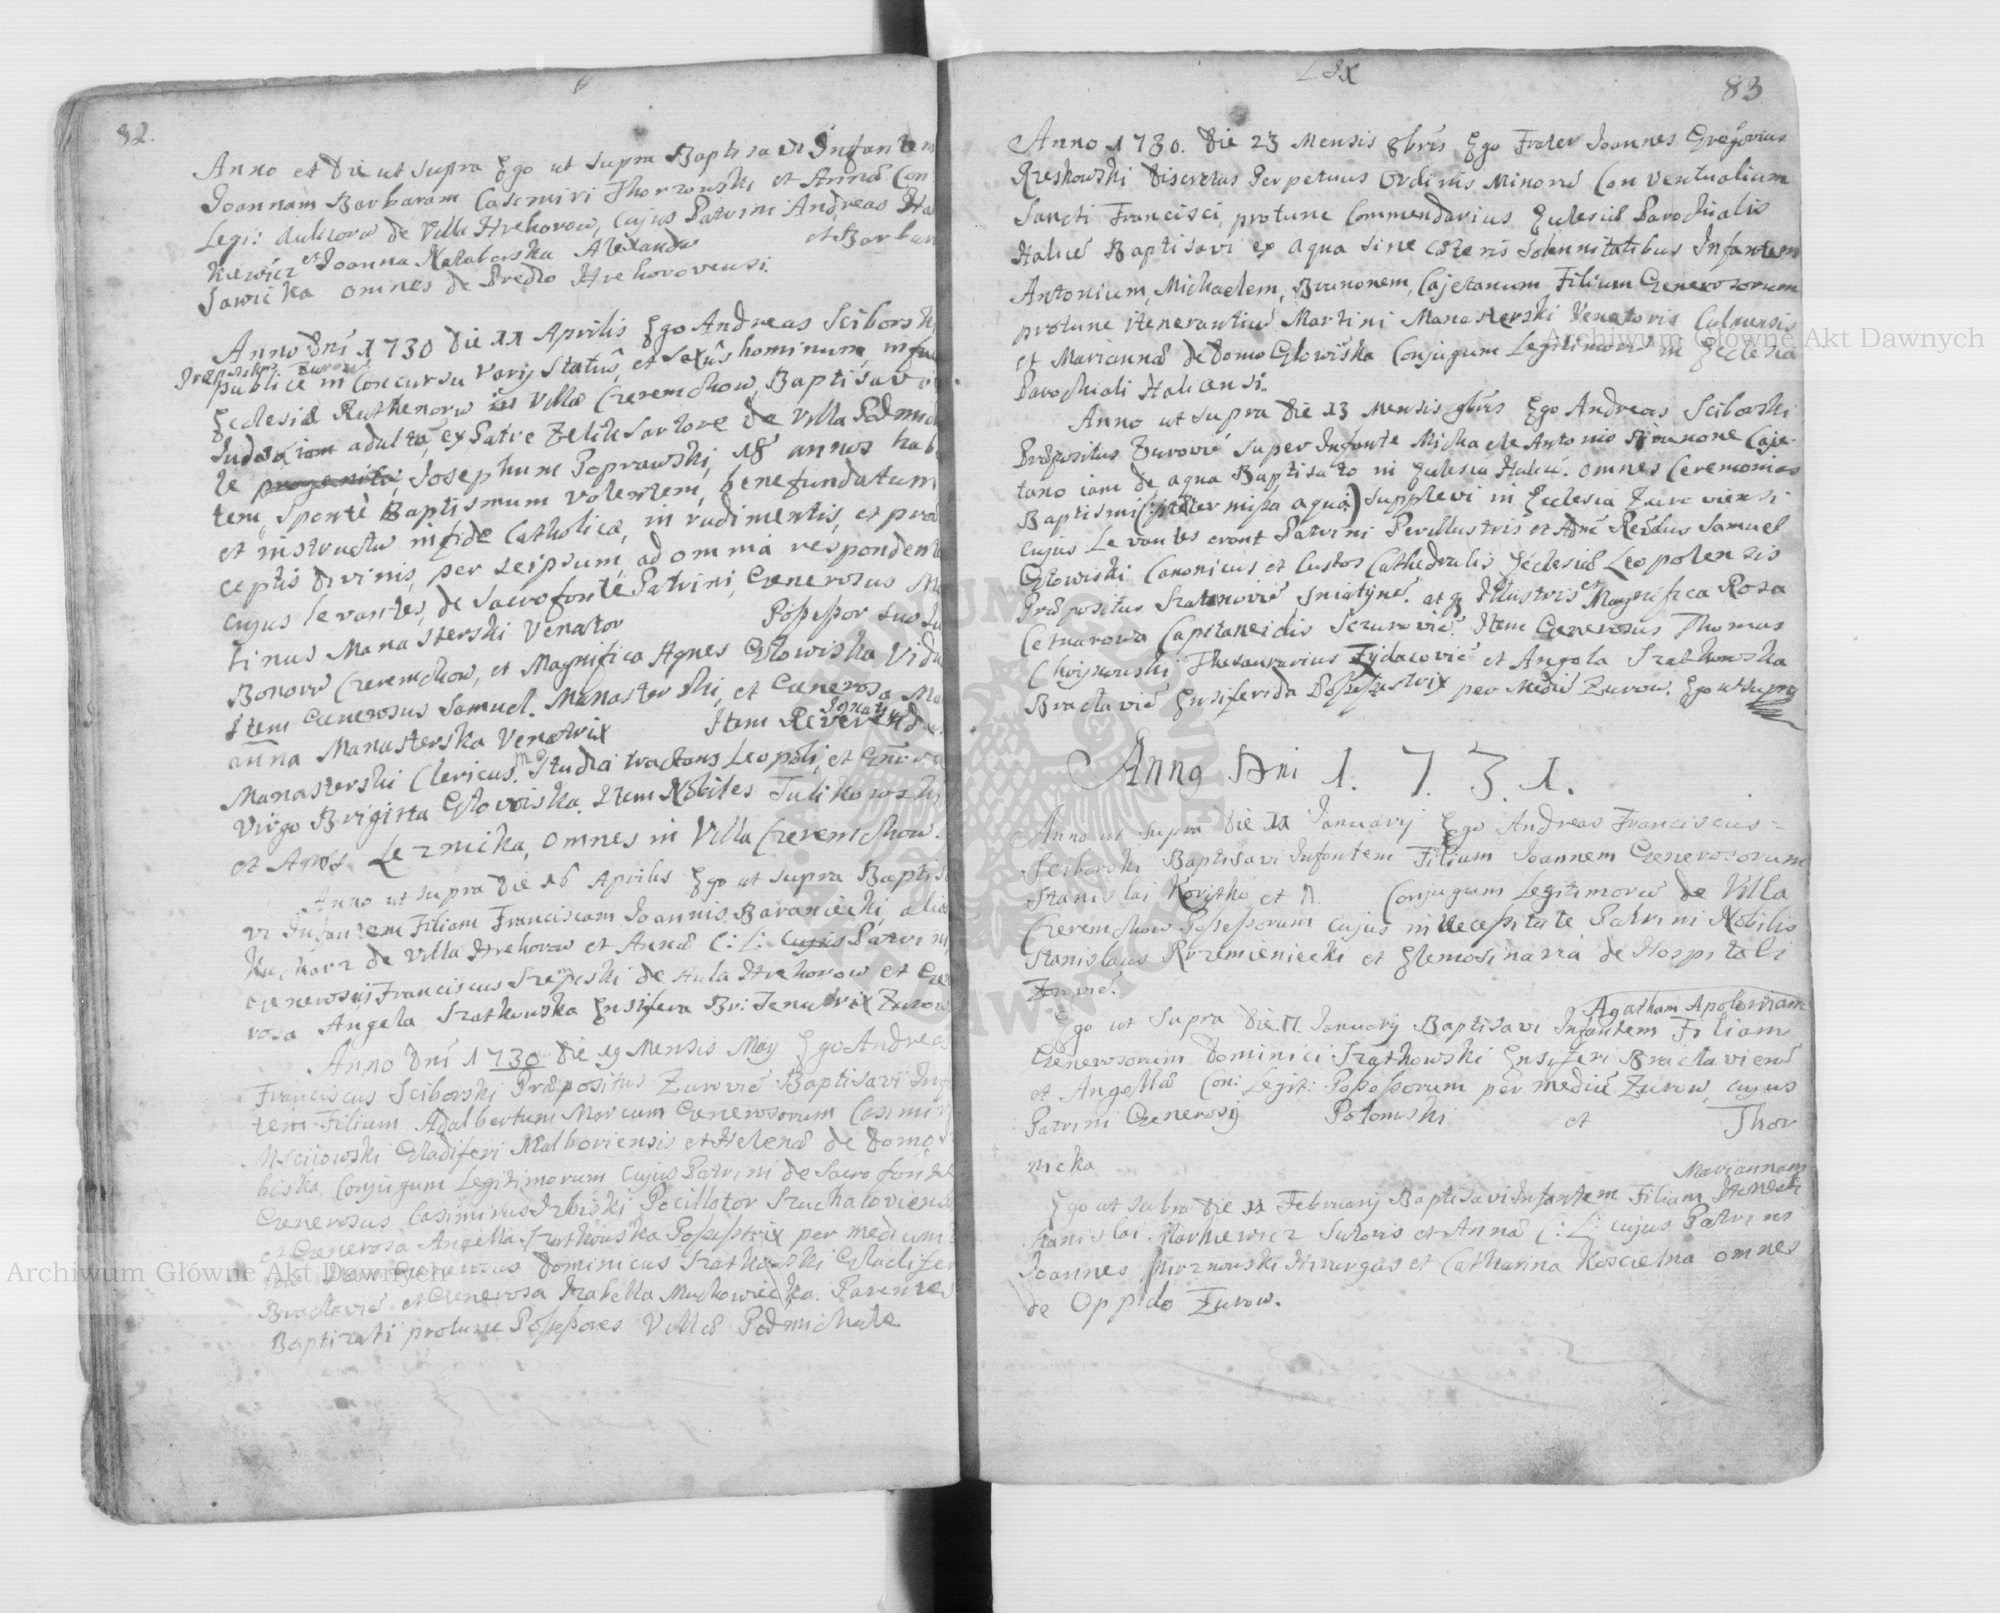 82.
Anno et Die ut supra Ego ut supra Baptisavi Infantem
Joannam Barbaram Casimiri Thorzowski et Annæ Con
Legi: de Villa Hrehorow, Cujus Patrini Andreas
kiewicz et Joanna Alexander et Barbara
Sawicka omnes de Prædio Hrehorovensi.
Anno Dni 1730 Die 11 Aprilis Ego Andreas Sciborski
Præpositus Zurow:
publicè in Concursu varij Statûs, et Sexûs hominum, in
Ecclesia Ruthenorũ in Villa Czeremchow, Baptisavi
iam adultũ, ex Patre Zelik Sartore de Villa Podmicha
le progenitũ, Josephum Poprawski, 18 annos habe
tem, Spontè Baptismum volentem, benefundatum
et instructũ in fide Catholica, in rudimentis, et præ
ceptis divinis, per seipsum, ad omnia respondente
cujus levantes, de Sacro fonte Patrini, Generosus Mar
tinus Manasterski Venator Possessor
Bonorũ Czeremchow, et Magnifica Agnes Głowiska Vidu
Item Generosus Samuel Manasterski, et Generosa Mari
anna Manasterska Venatrix Item Reverendus
Ignatius
Manasterski Clericus, Studia tractans Leopoli, et Gnrosa
Virgo Brigitta Głowiska. Item Nobiles Tulikowski
et Agnes Leznicka, omnes in Villa Czeremchow.
Anno ut supra Die 16 Aprilis Ego ut supra Baptisa
vi Infantem Filiam Franciscam Joannis Baraniecki, alias
Kucharz de Villa Hrehorow et Annæ C: L: cujus Patrini
Generosus Franciscus de Aula Hrehorow et Gene
rosa Angela Szatkowska Ensifera Br: Tenutrix Zurow
Anno Dni 1730 Die 19 Mensis Maij Ego Andreas
Franciscus Sciborski Præpositus Zurovien Baptisavi Infan
tem Filium Adalbertum Marcum Generosorum Casimiri
Mscijowski Gladiferi Malboriensis et Helenæ de Domo
biska, Conjugum Legitimorum cujus Patrini de Sacro fonte
Generosus Casimirus Pocillator
et Generosa Angella Szatkowska Possestrix per medium
Generosus Dominicus Szatkowski Gladifer
Braclavien et Generosa Izabella Muchowiecka. Parentes
Baptizati protunc Possessores Villæ Podmichale
83
Anno 1730. Die 23 Mensis 8bris Ego Frater Joannes Gregorius
Rzeskowski Discretus Perpetuus Ordinis Minorũ Conventualium
Sancti Francisci, protunc Commendarius Ecclesiæ Parochialis
Halicien Baptisavi ex aqua sine cæteris Solennitatibus Infantem
Antonium, Michaelem, Brunonem, Cajetanum Filium Generosorum
protunc Itenerantiũ Martini Manasterski Venatoris
et Mariannæ de Domo Głowiska Conjugum Legitimorũ in Ecclesia
Parochiali Haliciensi.
Anno ut supra Die 13 Mensis 9bris Ego Andreas Sciborski
Præpositus Zurovien Super Infante Michaele Antonio Brunone Caje-
tano iam de aqua Baptisato in Ecclesia Halicien. omnes Ceremonias
Baptismi (prætermissa aqua) supplevi in Ecclesia Zuroviensi
cujus Levantes erant Patrini Perillustris et Adm Rendus Samuel
Głowiski Canonicus et Custos Cathedralis Ecclesiæ Leopolensis
Præpositus Sniatyn. atq Illustris et Magnifica Rosa
Cetnarowa Capitaneidis Item Generosus Thomas
Thesaurarius et Angela Szatkowska
Braclavien Ensiferida Possestrix per Mediũ Zurow. Ego ut supra
Anno Dni 1. 7. 3. 1.
Anno ut supra Die 11 Januarij Ego Andreas Franciscus-
Sciborski Baptisavi Infantem Filium Joannem Generosorum
Stanislai Korytko et N. Conjugum Legitimorũ de Villa
Czeremchow Possessorum cujus in necessitate Patrini Nobilis
Stanislaus Krzemieniecki et Elemosinaria de Hospitali
Zurovien.
Agatham Apoloniam
Ego ut supra Die 17. Januarij Baptisavi Infantem Filiam
Generosorum Dominici Szatkowski Ensiferi Braclavien
et Angellæ Con: Legit: Possessorum per mediũ Zurow, cujus
Patrini Generosij Potowski et Thor
nicka
Mariannam
Ego ut supra Die 11 Februarij Baptisavi Infantem Filiam Honesti
Stanislai Markiewicz Sutoris et Annæ C: L: cujus Patrini
Joannes et Catharina Koscielna omnes
de Oppido Zurow.
Archiwum Główne Akt Dawnych
Archiwum Główne Akt Dawnych